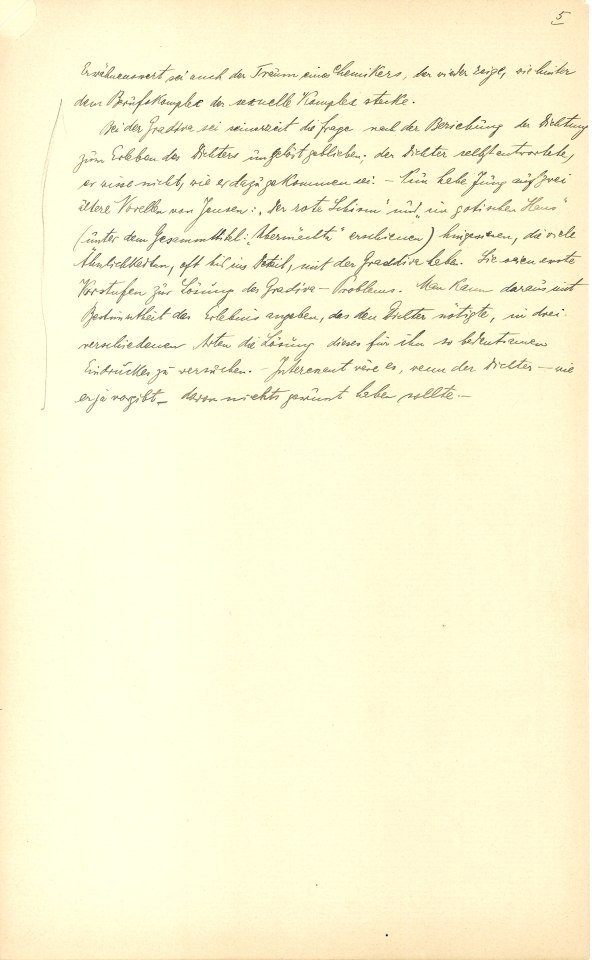 5
Erwähnenswert sei auch der Traum eines Chemikers, der wieder zeige, wie hinter
dem Berufskomplex der sexuelle Komplex stecke.
Bei der Gradiva sei seinerzeit die Frage nach der Beziehung der Dichtung
zum Erleben des Dichters ungelöst geblieben. der Dichter selbst antwortete,
er wisse nicht, wie er dazu gekommen sei. – Nun habe Jung auf zwei
ältere Novellen von Jensen: „Der rote Schirm" und „im gotischen Hause"
(unter dem Gesammttitel: „Übermächte" erschienen) hingewiesen, die viele
Ähnlichkeiten, oft bis ins Detail, mit der Gradiva haben. Sie seien erste
Vorstufen zur Lösung des Gradiva – Problems. Man kann daraus mit
Bestimmtheit das Erlebnis angeben, das den Dichter nötigte, in drei
verschiedenen Arten die Lösung dieses für ihn so bedeutsamen
Eindruckes zu versuchen. – Interessant wäre es, wenn der Dichter – wie
er ja vorgibt – davon nichts gewusst haben sollte. –